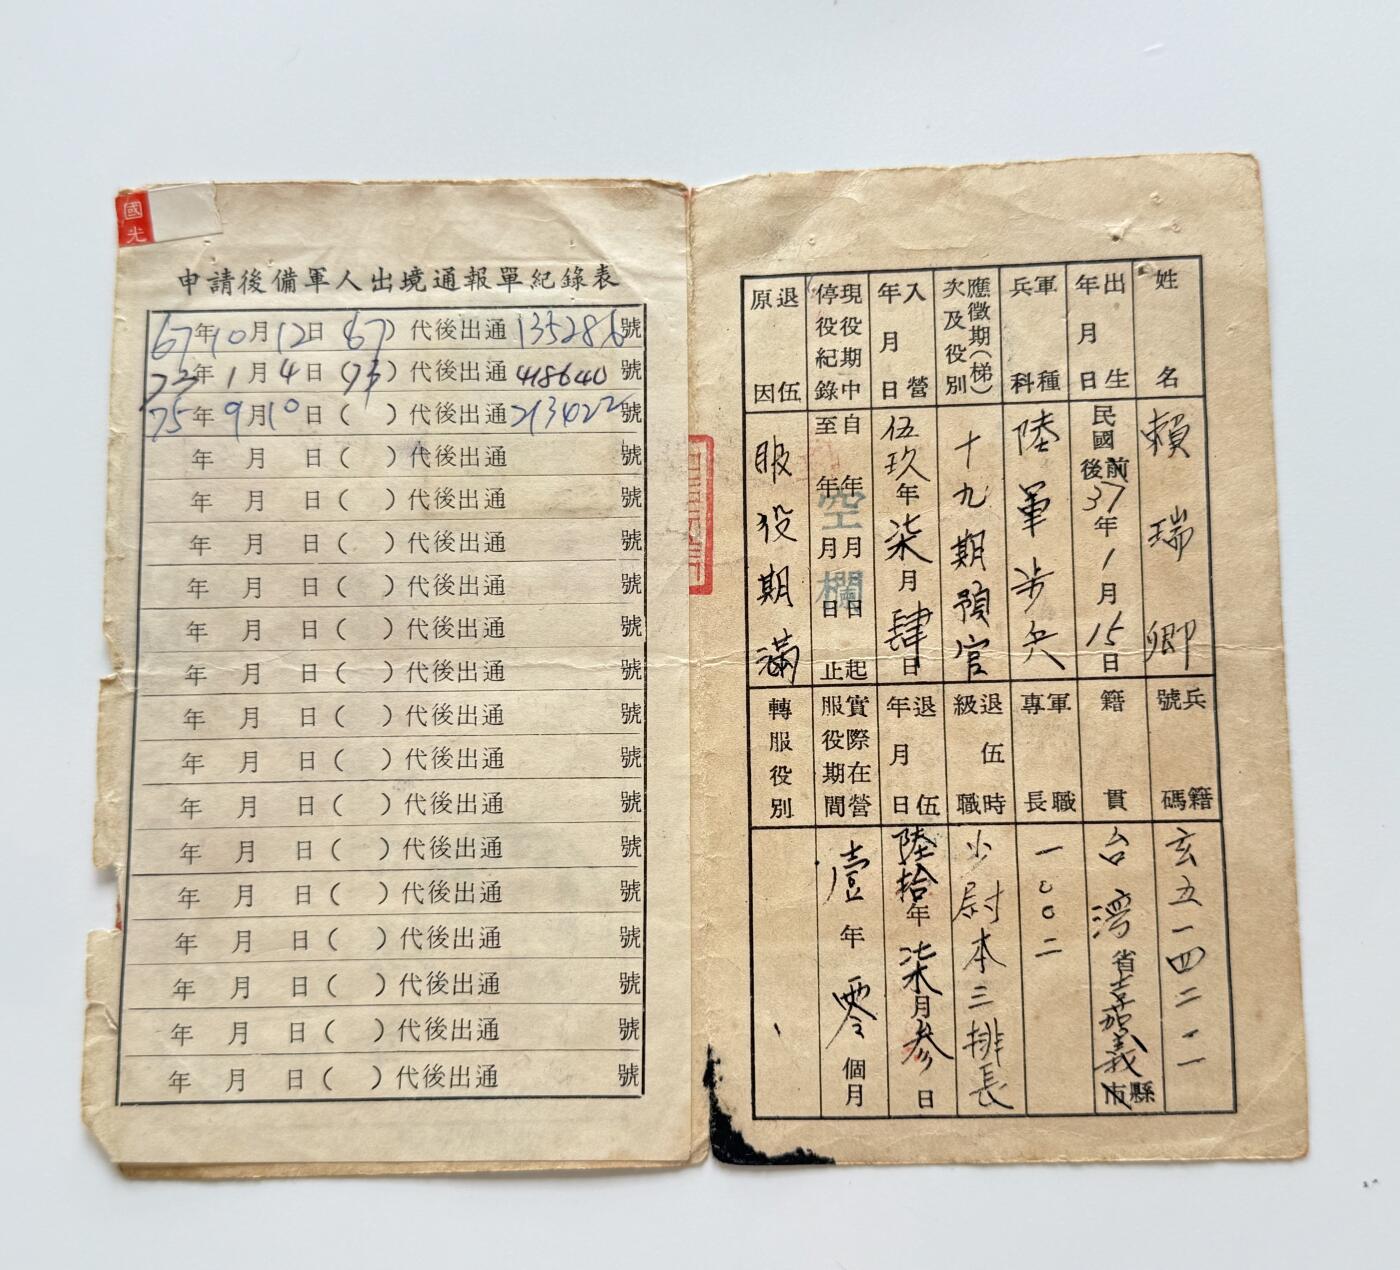 國光
申請後備軍人出境通報單紀錄表
67年10月12日(67)代後出通135286號
73年1月4日(73)代後出通418640號
75年9月10日( )代後出通213422號
年 月 日( )代後出通 號
年 月 日( )代後出通 號
年 月 日( )代後出通 號
年 月 日( )代後出通 號
年 月 日( )代後出通 號
年 月 日( )代後出通 號
年 月 日( )代後出通 號
年 月 日( )代後出通 號
年 月 日( )代後出通 號
年 月 日( )代後出通 號
年 月 日( )代後出通 號
年 月 日( )代後出通 號
年 月 日( )代後出通 號
年 月 日( )代後出通 號
年 月 日( )代後出通 號
姓名
賴瑞卿
兵籍號碼
玄五一四二二一
出生年月日
民國前後37年1月15日
籍貫
台灣省嘉義縣市
軍種兵科
陸軍步兵
軍職專長
一00二
應徵期(梯)次及役別
十九期預官
退伍時級職
少尉本三排長
入營年月日
伍玖年柒月肆日
退伍年月日
陸拾年柒月參日
現役期中停役紀錄
自 年 月 日起
至 年 月 日止
空欄
實際在營服役期間
壹年零個月
退伍原因
服役期滿
轉服役別